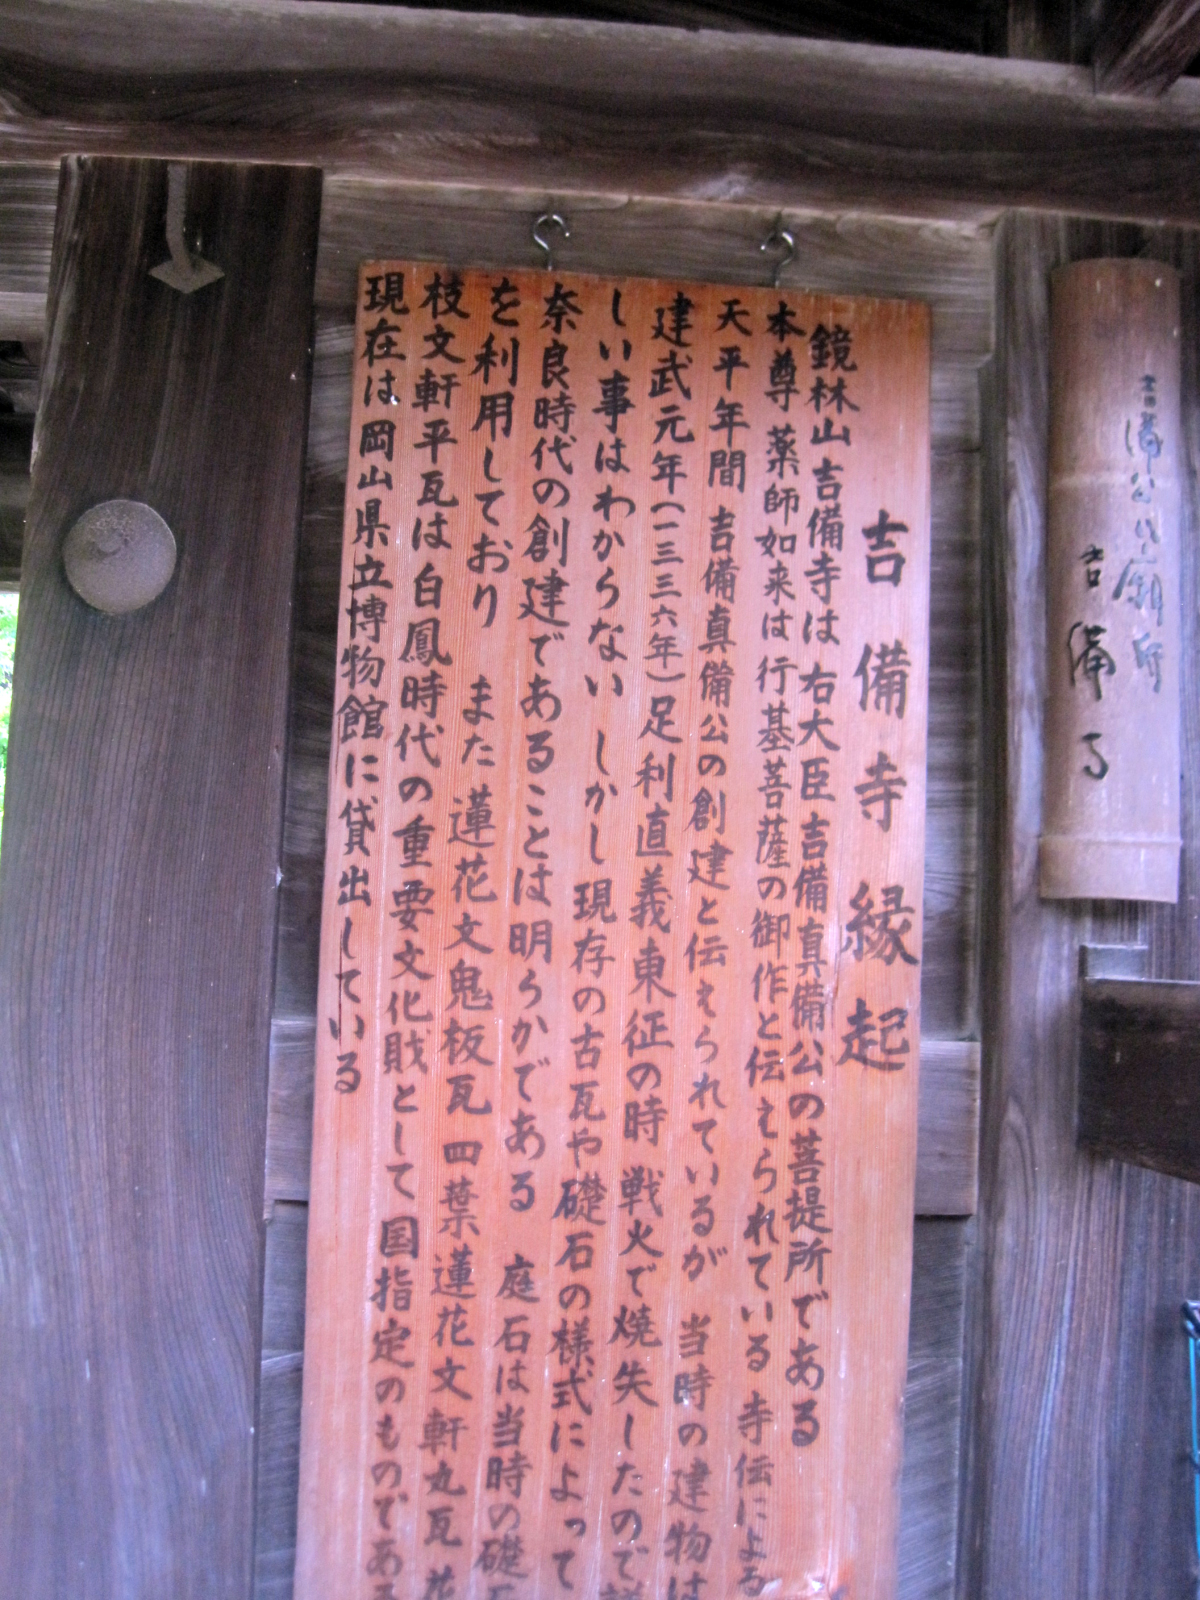 吉備寺縁起
鏡林山吉備寺は右大臣吉備真備公の菩提所である
本尊薬師如来は行基菩薩の御作と伝えられている寺伝によると
天平年間 吉備真備公の創建と伝えられているが 当時の建物は
建武元年(一三三六年)足利直義東征の時 戦火で焼失したので詳
しい事はわからない しかし現存の古瓦や礎石の様式によって
奈良時代の創建であることは明らかである 庭石は当時の礎石
を利用しており また蓮花文鬼板瓦 四葉蓮花文軒丸瓦 花
枝文軒平瓦は白鳳時代の重要文化財として国指定のものである
現在は岡山県立博物館に貸出している
吉備公公廟所
吉備寺